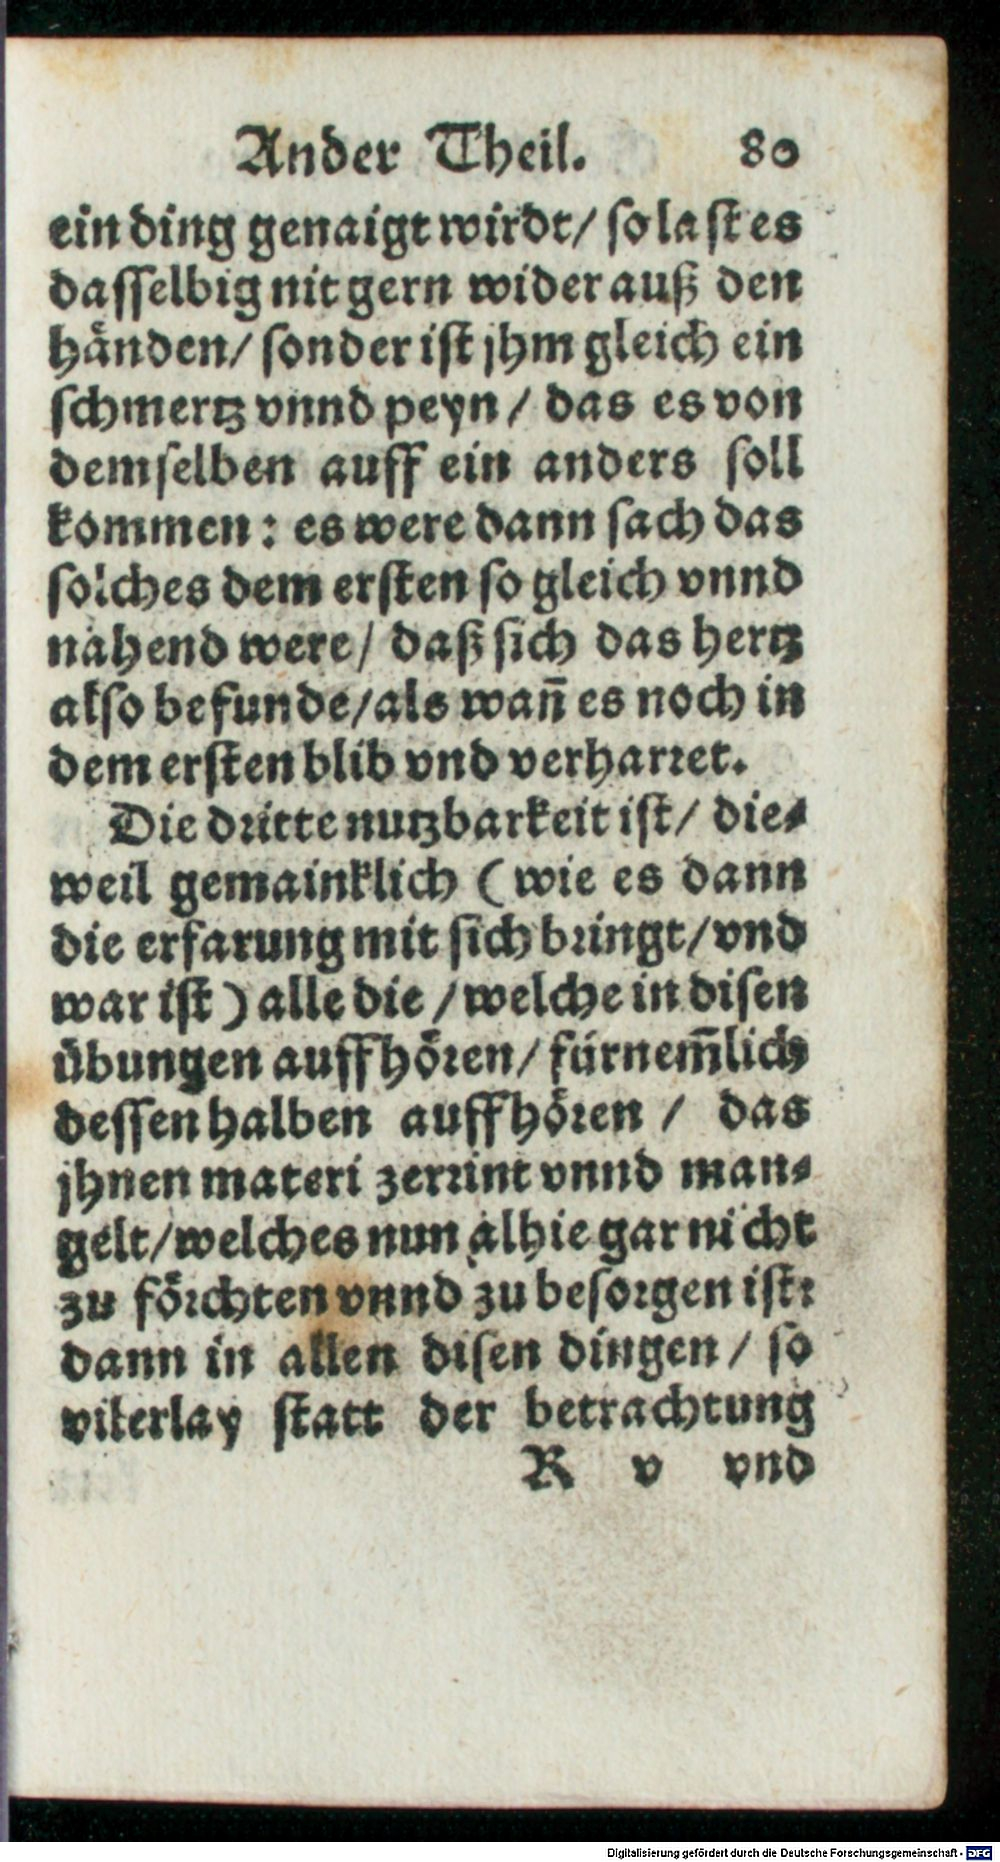 Ander Theil. 80
ein ding genaigt wirdt/ so last es
dasselbig nit gern wider auß den
händen/ sonder ist jhm gleich ein
schmertz vnnd peyn / das es von
demselben auff ein anders soll
kommen: es were dann sach das
solches dem ersten so gleich vnnd
nahend were/ daß sich das hertz
also befunde/als wañ es noch in
dem ersten blib vnd verharret.
Die dritte nutzbarkeit ist/ die⸗
weil gemainklich (wie es dann
die erfarung mit sich bringt/vnd
war ist) alle die /welche in disen
übungen auffhören/ fürnem̃lich
dessenhalben auffhören / das
jhnen materi zerrint vnnd man⸗
gelt/welches nun alhie gar nicht
zu förchten vnnd zu besorgen ist:
dann in allen disen dingen/ so
vilerlay statt der betrachtung
R v vnd
Digitalisierung gefördert durch die Deutsche Forschungsgemeinschaft - DFG